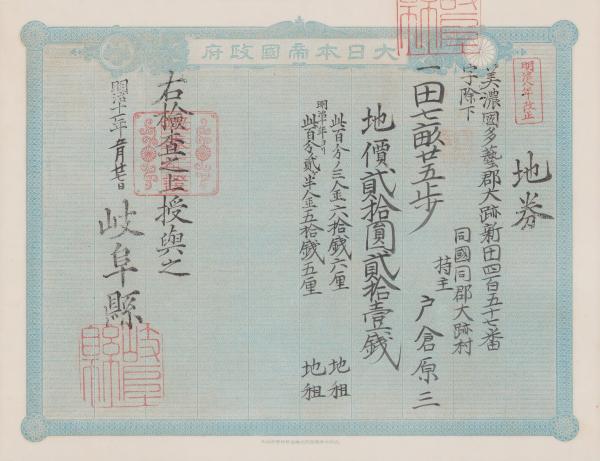 大日本帝國政府
明治八年改正
地券
美濃國多藝郡大跡新田四百五十七番
字除下
同國同郡大跡村
持主 戸倉原三
一田七畝廿五歩
地價貳拾圓貳拾壹錢
此百分ノ三金六拾錢六厘 地租
明治十年ヨリ
此百分ノ貳半金五拾錢五厘 地租
右檢査之上授與之
岐阜縣